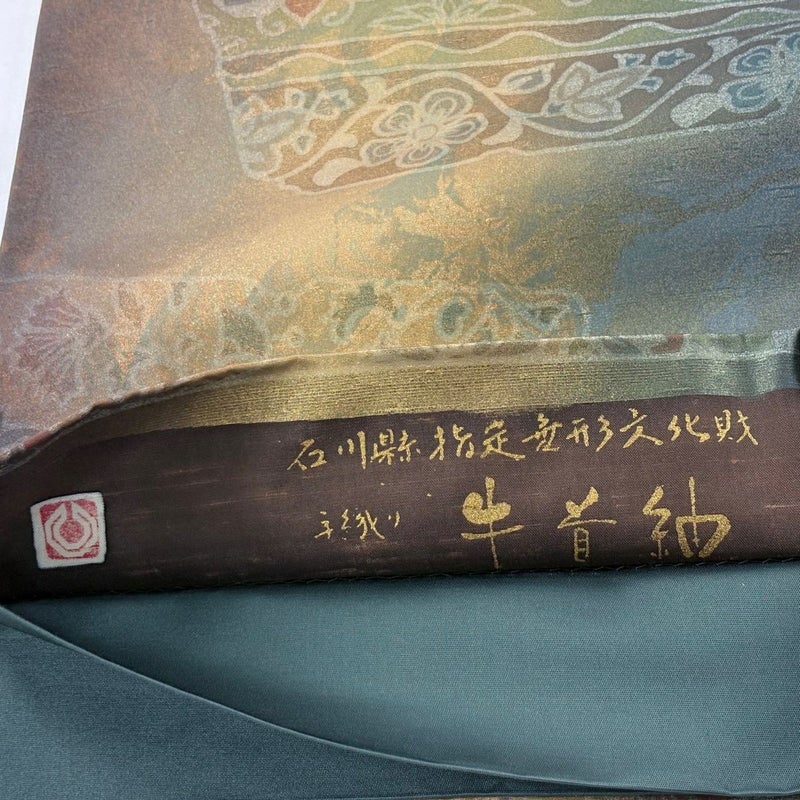 石川県指定無形文化財
手織り 牛首紬